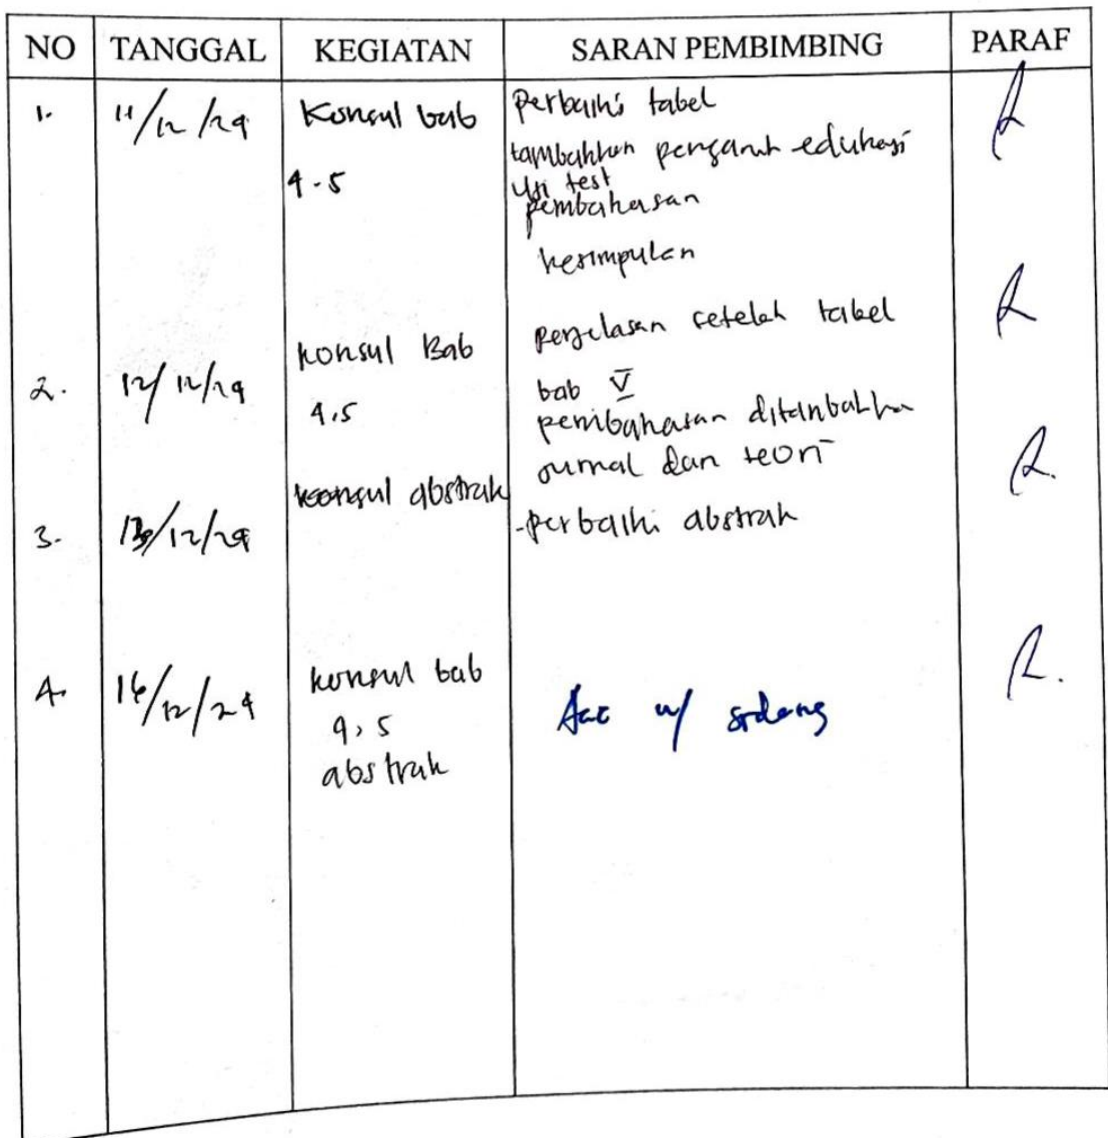 NO TANGGAL KEGIATAN SARAN PEMBIMBING PARAF
1. 11/12/24 Konsul bab perbaiki tabel
4-5 tambahkan pengaruh edukasi
Uji test
pembahasan
kesimpulan
2. 12/12/24 konsul Bab penjelasan setelah tabel
4,5 bab V
pembahasan ditambahkan
jurnal dan teori
3. 13/12/24 konsul abstrak -perbaiki abstrak
4. 16/12/24 konsul bab Acc u/ sidang
4, 5
abstrak